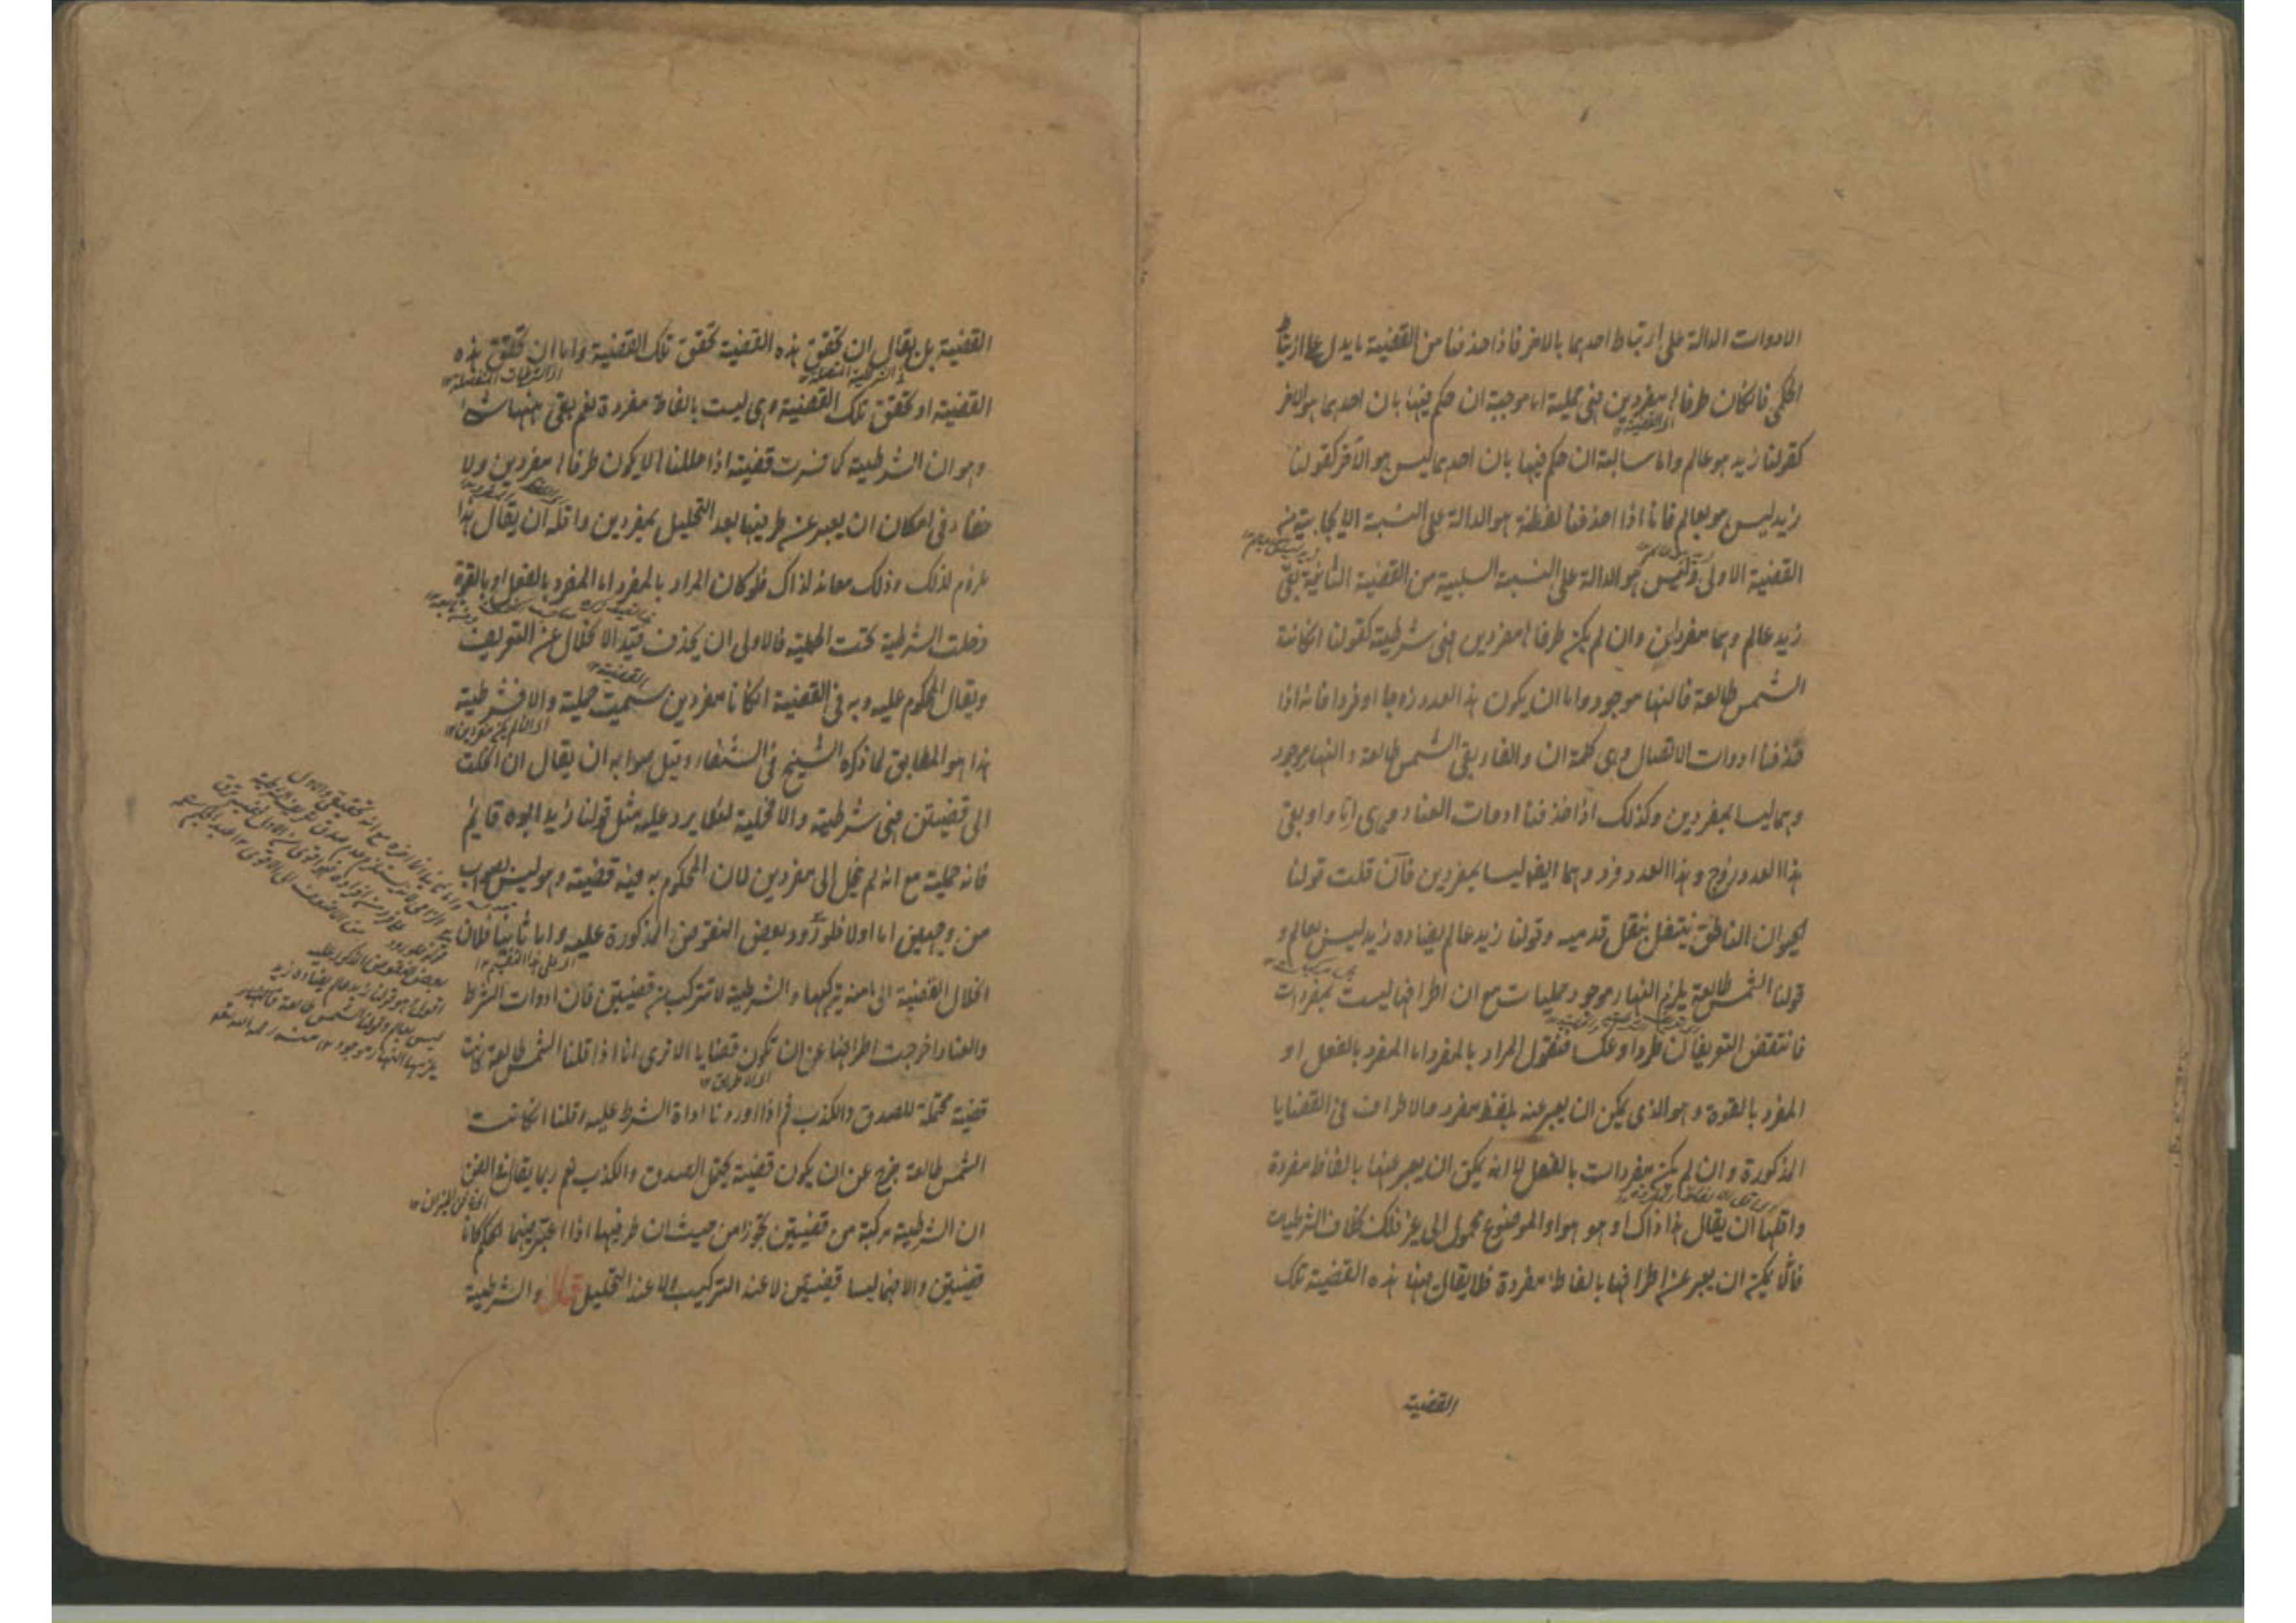 الادوات الدالة على ارتباط احدهما بالاخر فاذا حذفنا من القضية ما يدل على ارتباط
الحكمى فان كان طرفاها مفردين فهى حملية اما موجبة ان حكم فيها بان احدهما هو الاخر
كقولنا زيد هو عالم واما سالبة ان حكم فيها بان احدهما ليس هو الاخر كقولنا
زيد ليس هو بعالم فانا اذا حذفنا لفظة هو الدالة على النسبة الايجابية من
القضية الاولى وليس هو الدالة على النسبة السلبية من القضية الثانية بقى
زيد عالم وهما مفردان وان لم يكن طرفاها مفردين فهى شرطية كقولنا ان كانت
الشمس طالعة فالنهار موجود واما ان يكون هذا العدد زوجا او فردا فانه اذا
حذفنا ادوات الاتصال وهى كلمة ان والفاء بقى الشمس طالعة والنهار موجود
وهما ليسا بمفردين وكذلك اذا حذفنا ادوات العناد وهى اما واو بقى
هذا العدد زوج وهذا العدد فرد وهما ايضا ليسا بمفردين فان قلت قولنا
الحيوان الناطق ينتقل بنقل قدميه وقولنا زيد عالم يضاده زيد ليس بعالم و
قولنا الشمس طالعة يلزم النهار موجود حمليات مع ان اطرافها ليست بمفردات
فانتقض التعريفان طردا وعكسا فنقول المراد بالمفرد اما المفرد بالفعل او
المفرد بالقوة وهو الذى يمكن ان يعبر عنه بلفظ مفرد والاطراف فى القضايا
المذكورة وان لم يكن مفردات بالفعل الا انه يمكن ان يعبر عنها بالفاظ مفردة
واقلها ان يقال هذا ذاك او هو هو او الموضوع محمول الى غير ذلك بخلاف الشرطيات
فانه لا يمكن ان يعبر عن اطرافها بالفاظ مفردة فلا يقال فيها هذه القضية تلك
القضية
القضية بل يقال ان تحقق هذه القضية تحقق تلك القضية واما ان تحقق هذه
القضية او تحقق تلك القضية وهى ليست بالفاظ مفردة نعم بقى ههنا شئ
وهو ان الشرطية كما فسرت قضية اذا حللناها لا يكون طرفاها مفردين ولا
خفاء فى امكان ان يعبر عن طرفيها بعد التحليل بمفردين واقله ان يقال هذا
ملزوم لذلك وذلك معاند لذاك فلو كان المراد بالمفرد اما المفرد بالفعل او بالقوة
دخلت الشرطية تحت الحملية فالاولى ان يحذف قيد الانحلال عن التعريف
ويقال المحكوم عليه وبه فى القضية ان كانا مفردين سميت حملية والا فشرطية
هذا هو المطابق لما ذكره الشيخ فى الشفاء وقيل صوابه ان يقال ان انحلت
الى قضيتين فهى شرطية والا فحملية لئلا يرد عليه مثل قولنا زيد ابوه قائم
فانه حملية مع انه لم ينحل الى مفردين لان المحكوم به فيه قضية وهو ليس بصواب
من وجهين اما اولا فلورود بعض النقوض المذكورة عليه واما ثانيا فلان
انحلال القضية الى ما منه تركبها والشرطية لا تتركب من قضيتين فان ادوات الشرط
والعناد اخرجت اطرافها عن ان تكون قضايا الا ترى انا اذا قلنا الشمس طالعة كانت
قضية محتملة للصدق والكذب ثم اذا اوردنا اداة الشرط عليه وقلنا ان كانت
الشمس طالعة خرج عن ان يكون قضية يحتمل الصدق والكذب نعم ربما يقال فى الفن
ان الشرطية مركبة من قضيتين تجوزا من حيث ان طرفيها اذا اعتبر فيهما الحكم كانا
قضيتين والا فهما ليسا قضيتين لا عند التركيب ولا عند التحليل قال والشرطية